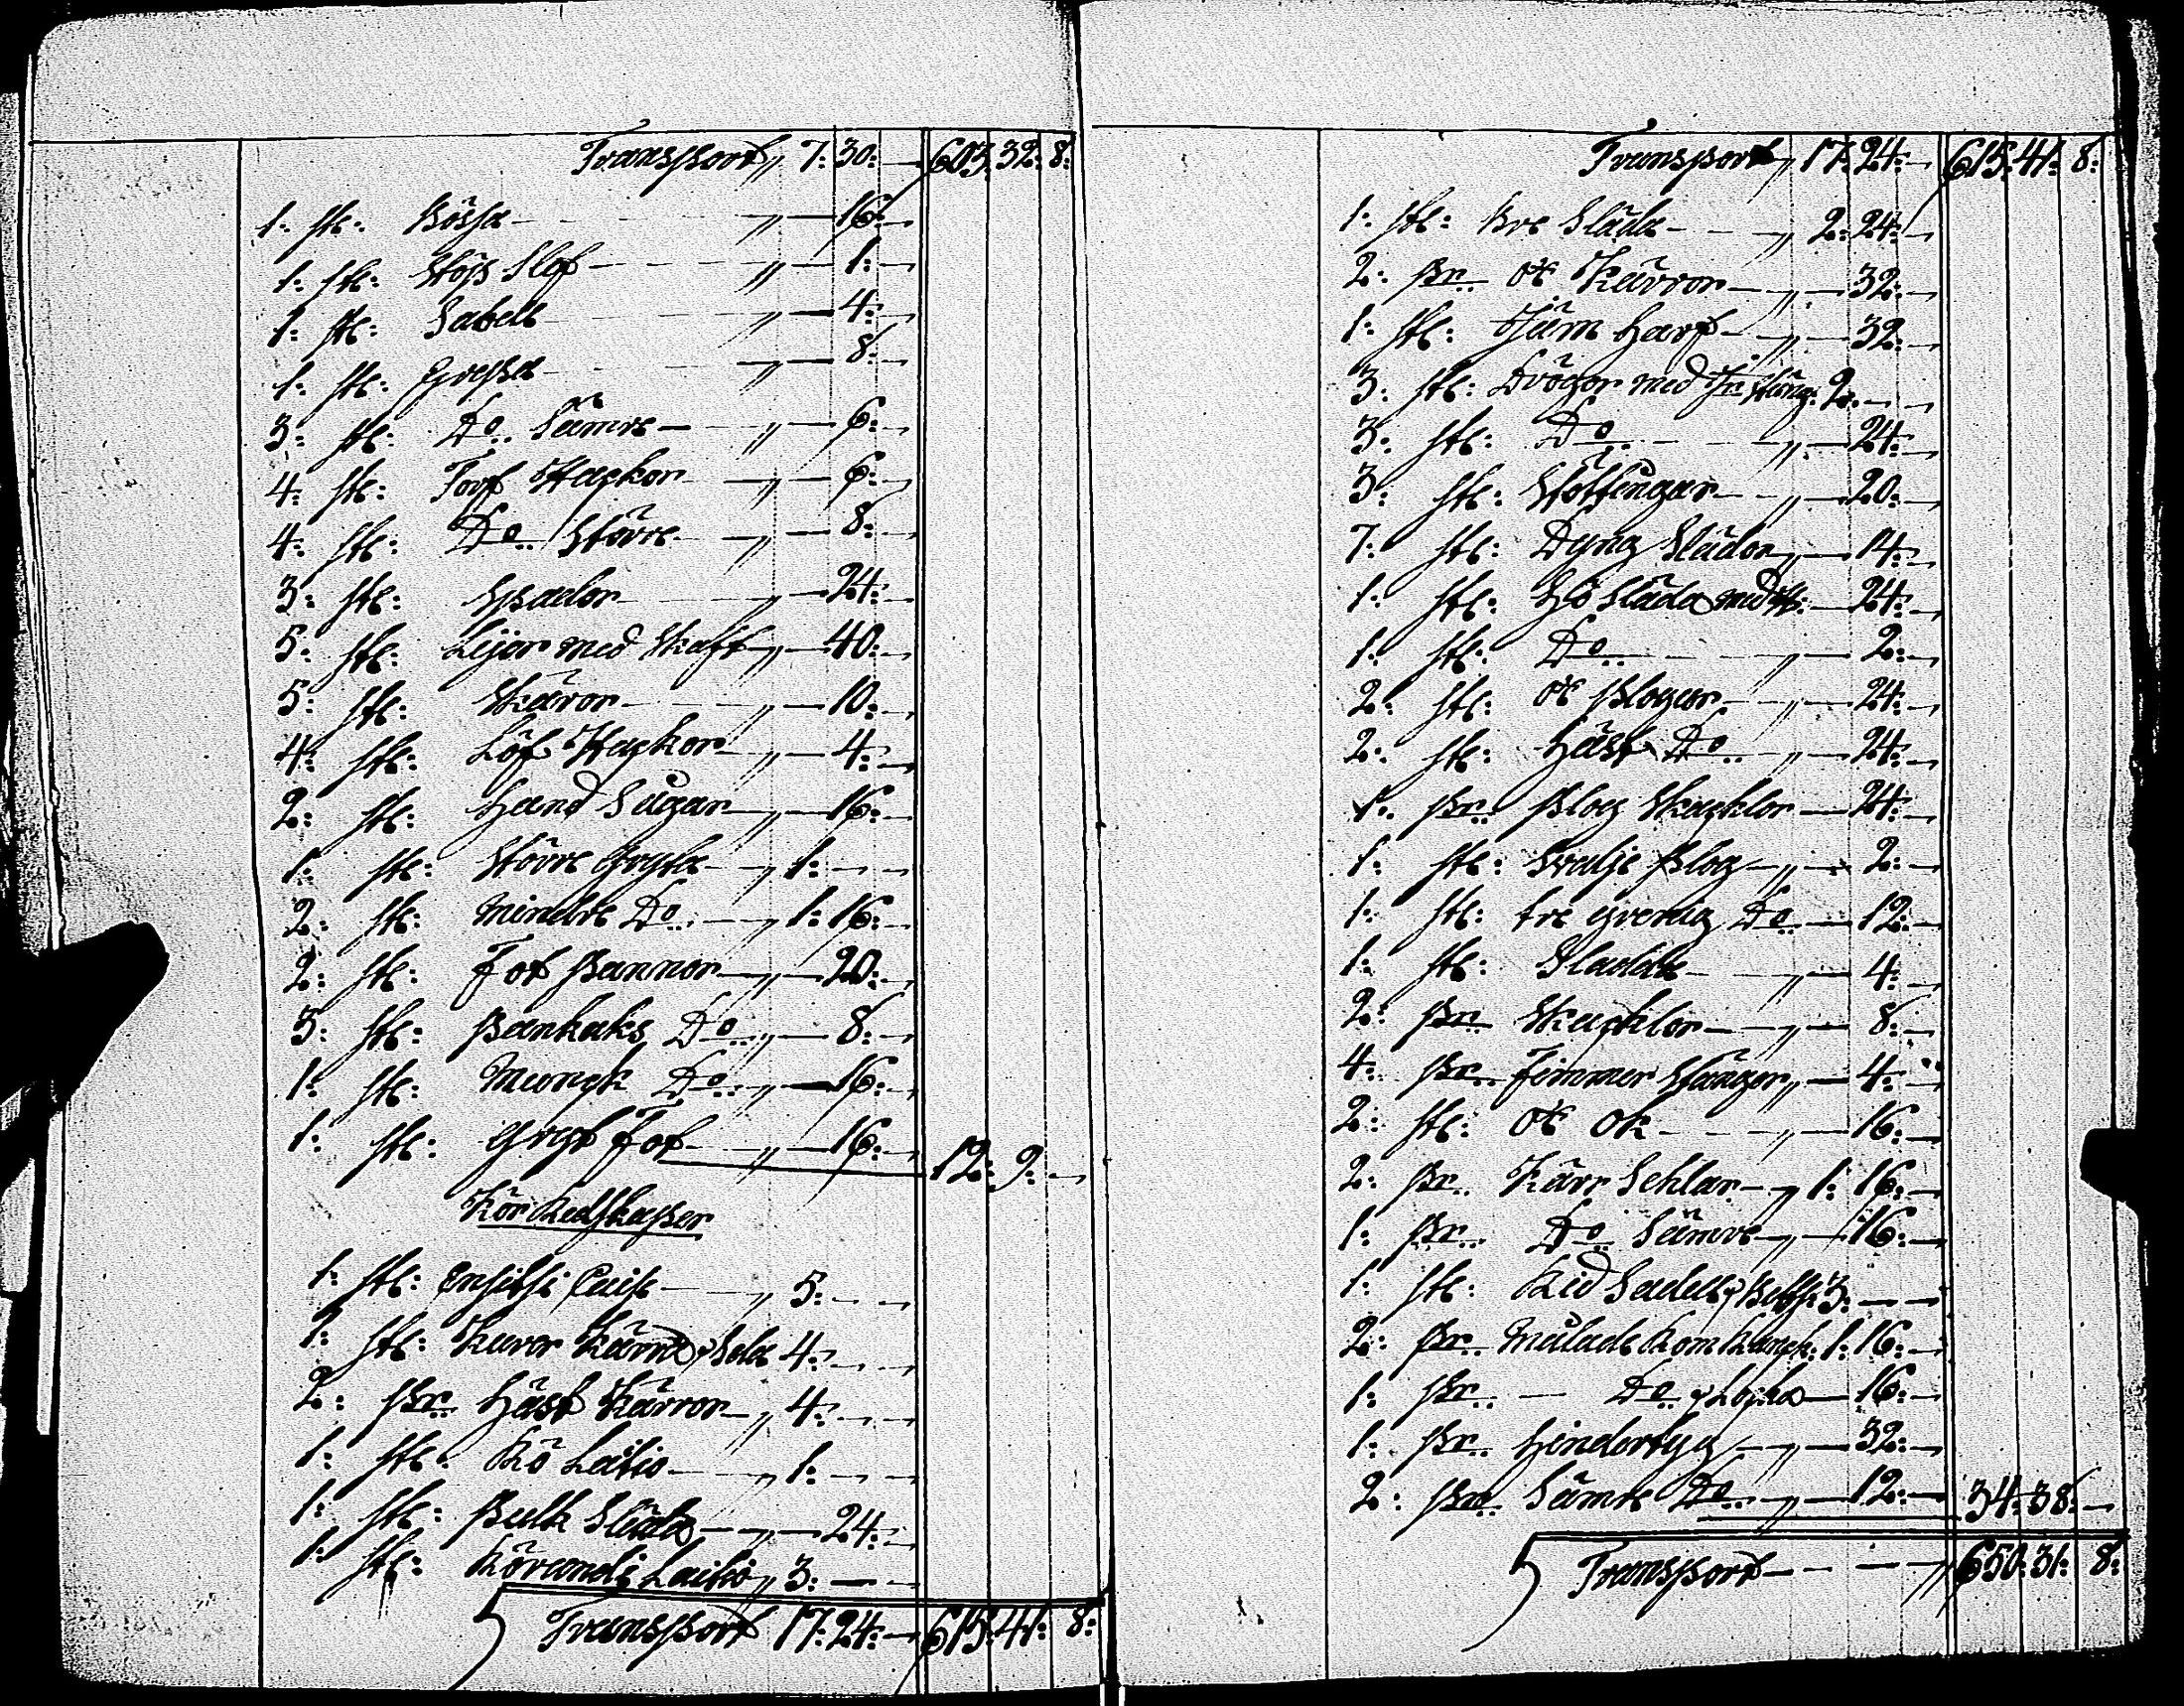 Transport „ 7: 30: — 603: 32: 8:
1: st: Bössa „ — 16: —
1: st: Stöp Slef „ — 1: —
1: st: Sabell „ — 4: —
1: st: Grepa „ — 8: —
3: st: Do Sämre „ — 6: —
4: st: Torf Hackor „ — 6: —
4: st: Do Större „ — 8: —
3: st: Spador „ — 24: —
5: st: Lijor med Skaft „ — 40: —
5: st: Skäror „ — 10: —
4: st: Löf Hackor „ — 4: —
2: st: Hand Sågar „ — 16: —
1: st: Större Gryta „ 1: — —
2: st: Mindre Do „ 1: 16: —
2: st: Fot Pannor „ — 20: —
3: st: Pankaks Do „ — 8: —
1: st: Munck Do „ — 16: —
1: st: Gryt Fot „ — 16: — 12: 9: —
Kör Redskaper
1: st: Ensitsi „ 5: — —
1: st: Karor Kärra, Sela 4: — —
2: pr Häst Kärror „ 4: — —
1: st: Kö „ 1: — —
1: st: Pulk Släda „ — 24: —
1: st: „ 3: — —
Transport 17: 24: — 615: 41: 8:
Transport „ 17: 24: — 615: 41: 8:
1: st: Bre Släda „ 2: 24: —
2: pr ok Kärror „ — 32: —
1: st: Harf „ — 32: —
3: st: Drögor med 2: — —
3: st: Do „ — 24: —
3: st: Stöttingar „ — 20: —
7: st: Dyng Slädor „ — 14: —
1: st: Hö Släda med — 24: —
1: st: Do „ — 2: —
2: st: ok Plogar „ — 24: —
2: st: Häst Do — 24: —
1: pr Plog Skacklor — 24: —
1: st: Plog „ — 2: —
1: st: tre grenig Do — 12: —
1: st: „ — 4: —
2: pr Skacklor „ — 8: —
4: pr Timmer Stänger „ — 4: —
2: st: ok ok „ — 16: —
2: pr Kärr Sehlar „ 1: 16: —
1: pr Do Sämre „ — 16: —
1: st: Rid Sadell 3: — —
2: pr Målade 1: 16: —
1: pr — Do — 16: —
1: pr Hindertyg „ — 32: —
2: pr Sämre Do „ — 12: — 34: 38: —
Transport — — — „ 650: 31: 8: